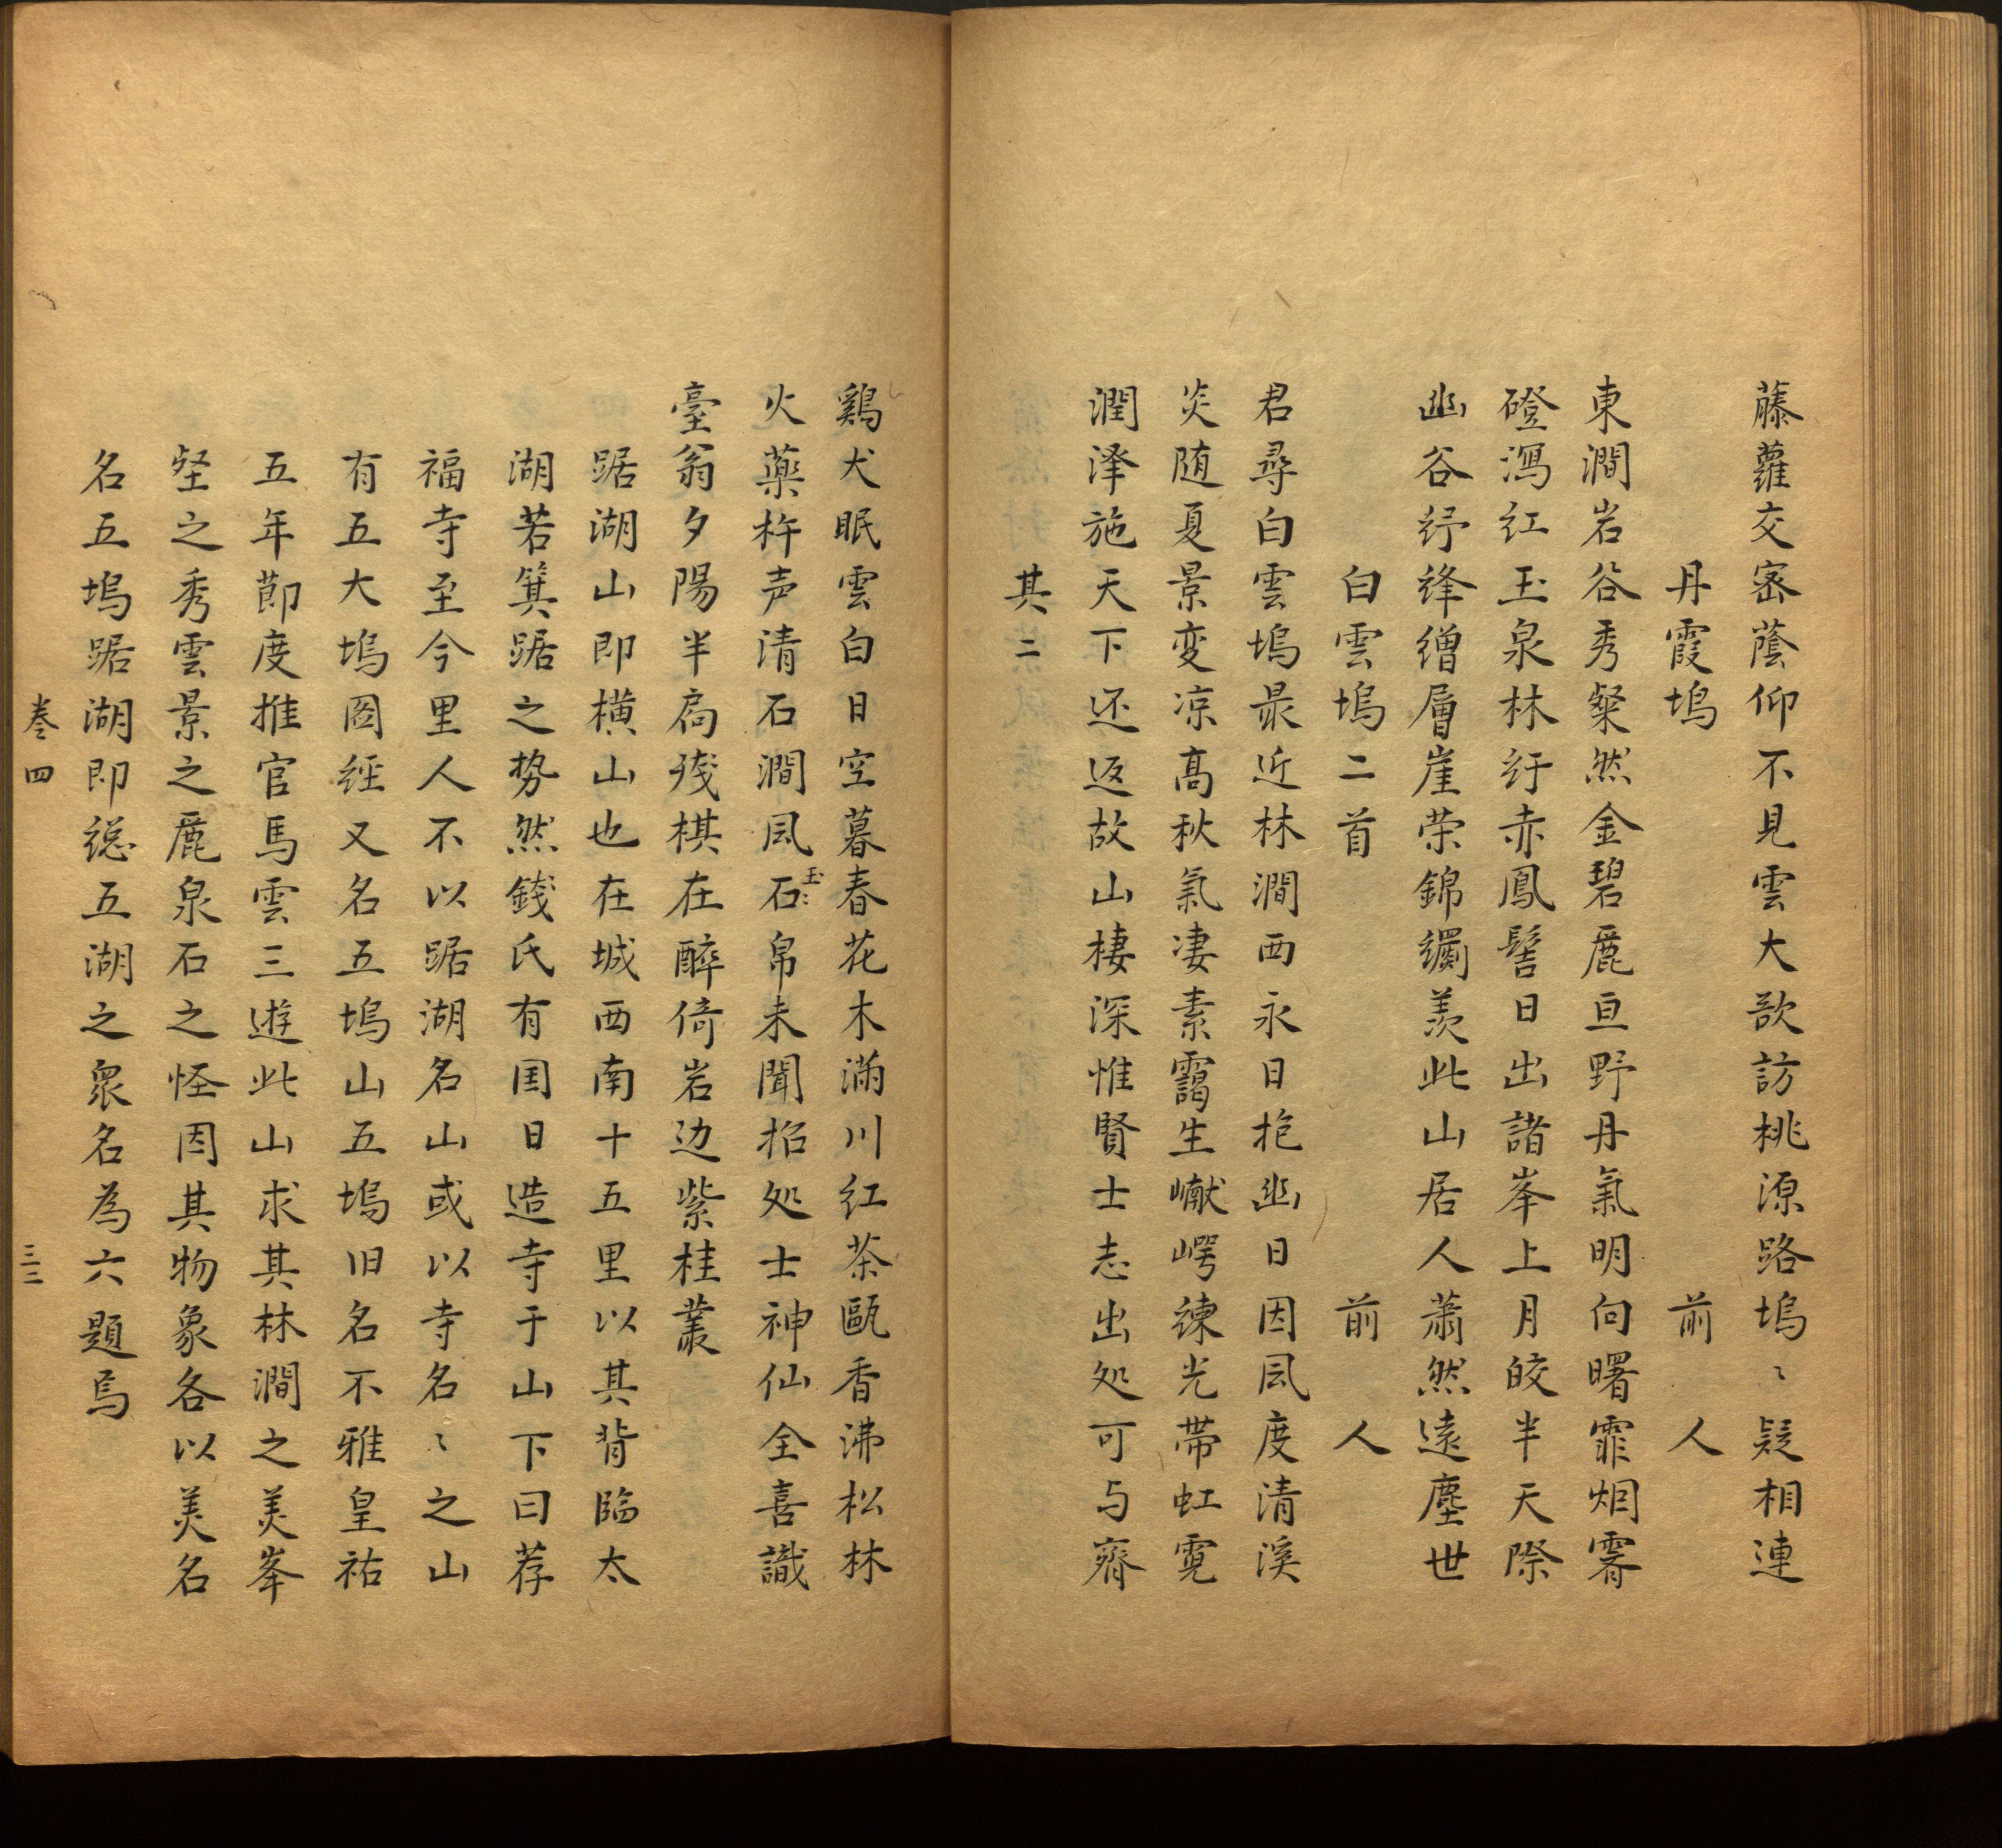 藤蘿交密蔭仰不見雲大欲訪桃源路塢〻疑相連
丹霞塢　前人
東澗岩谷秀粲然金碧麗亘野丹氣明向曙霏烟霽
磴瀉紅玉泉林紆赤鳳髻日出諸峯上月皎半天際
幽谷紆絳繒層崖荣錦纈羨此山居人蕭然遠塵世
白雲塢二首　前人
君尋白雲塢最近林澗西永日抱幽日因風度清溪
炎随夏景変凉高秋氣凄素靄生巘崿練光帶虹霓
潤泽施天下还返故山棲深惟賢士志出処可与齊
其二
鷄犬眠雲白日空暮春花木滿川紅茶甌香沸松林
火藥杵声清石澗風石帛未聞招処士神仙全喜識
玉〻
臺翁夕陽半扃残棋在醉倚岩边紫桂叢
踞湖山即橫山也在城西南十五里以其背臨太
湖若箕踞之势然錢氏有囯日造寺于山下曰荐
福寺至今里人不以踞湖名山或以寺名〻之山
有五大塢圖經又名五塢山五塢旧名不雅皇祐
五年節度推官馬雲三遊此山求其林澗之美峯
壑之秀雲景之麗泉石之怪因其物象各以美名
名五塢踞湖即總五湖之衆名為六題焉
巻四
三三